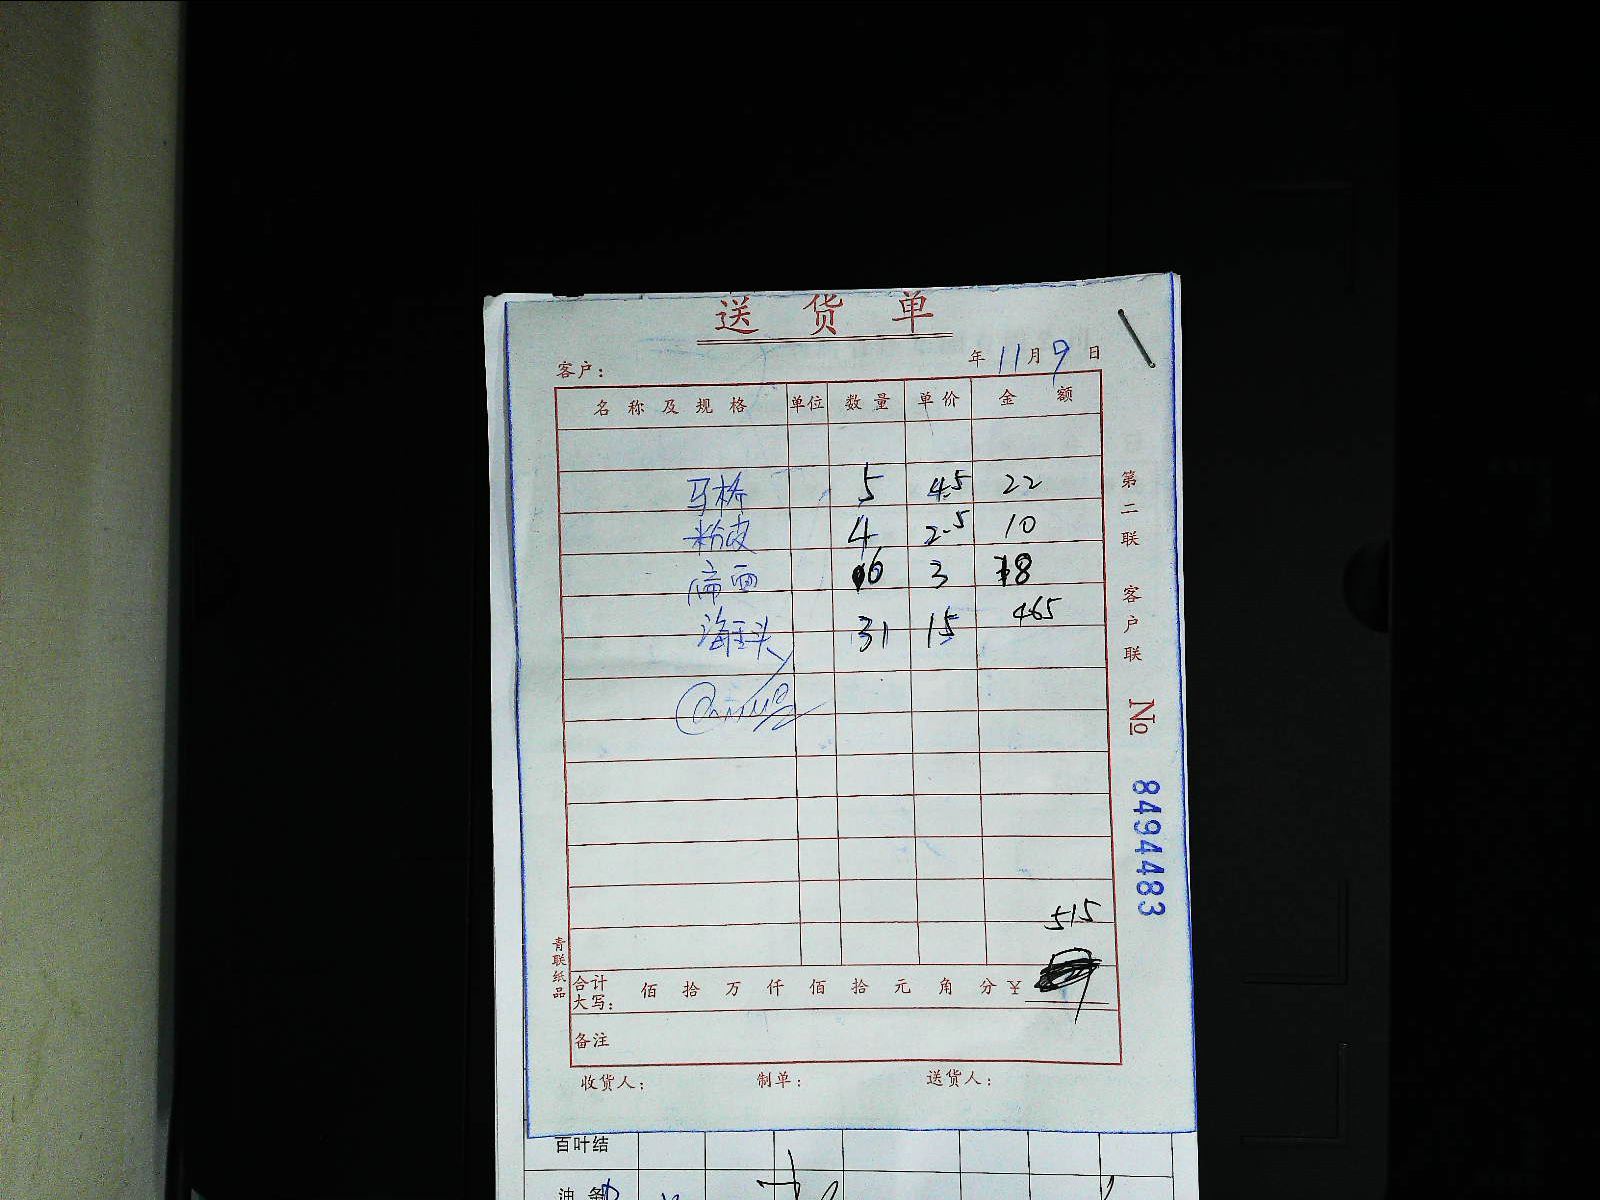 送货单
客户： 年 11 月 9 日
名称及规格 单位 数量 单价 金额
马桥 5 4.5 22
粉皮 4 2.5 10
面 6 3 18
海头 31 15 465
515
合计大写： 佰 拾 万 仟 佰 拾 元 角 分 ￥
备注
收货人： 制单： 送货人：
青联纸品
第二联 客户联
№ 8494483
百叶结
油条